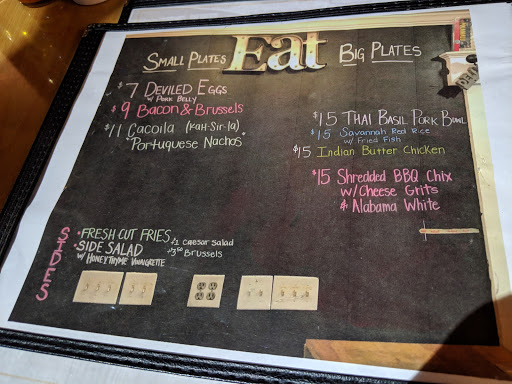 Small Plates
Eat
Big Plates
$7 Deviled Eggs
w/ Pork Belly
$9 Bacon & Brussels
$11 Cacoila (Kah-Sir-la)
"Portuguese Nachos"
$15 Thai Basil Pork Bowl
$15 Savannah Red Rice
w/ Fried Fish
$15 Indian Butter Chicken
$15 Shredded BBQ Chix
w/ Cheese Grits
& Alabama White
SIDES
• FRESH CUT FRIES
• SIDE SALAD
w/ Honey Thyme Vinaigrette
Caesar Salad
Brussels